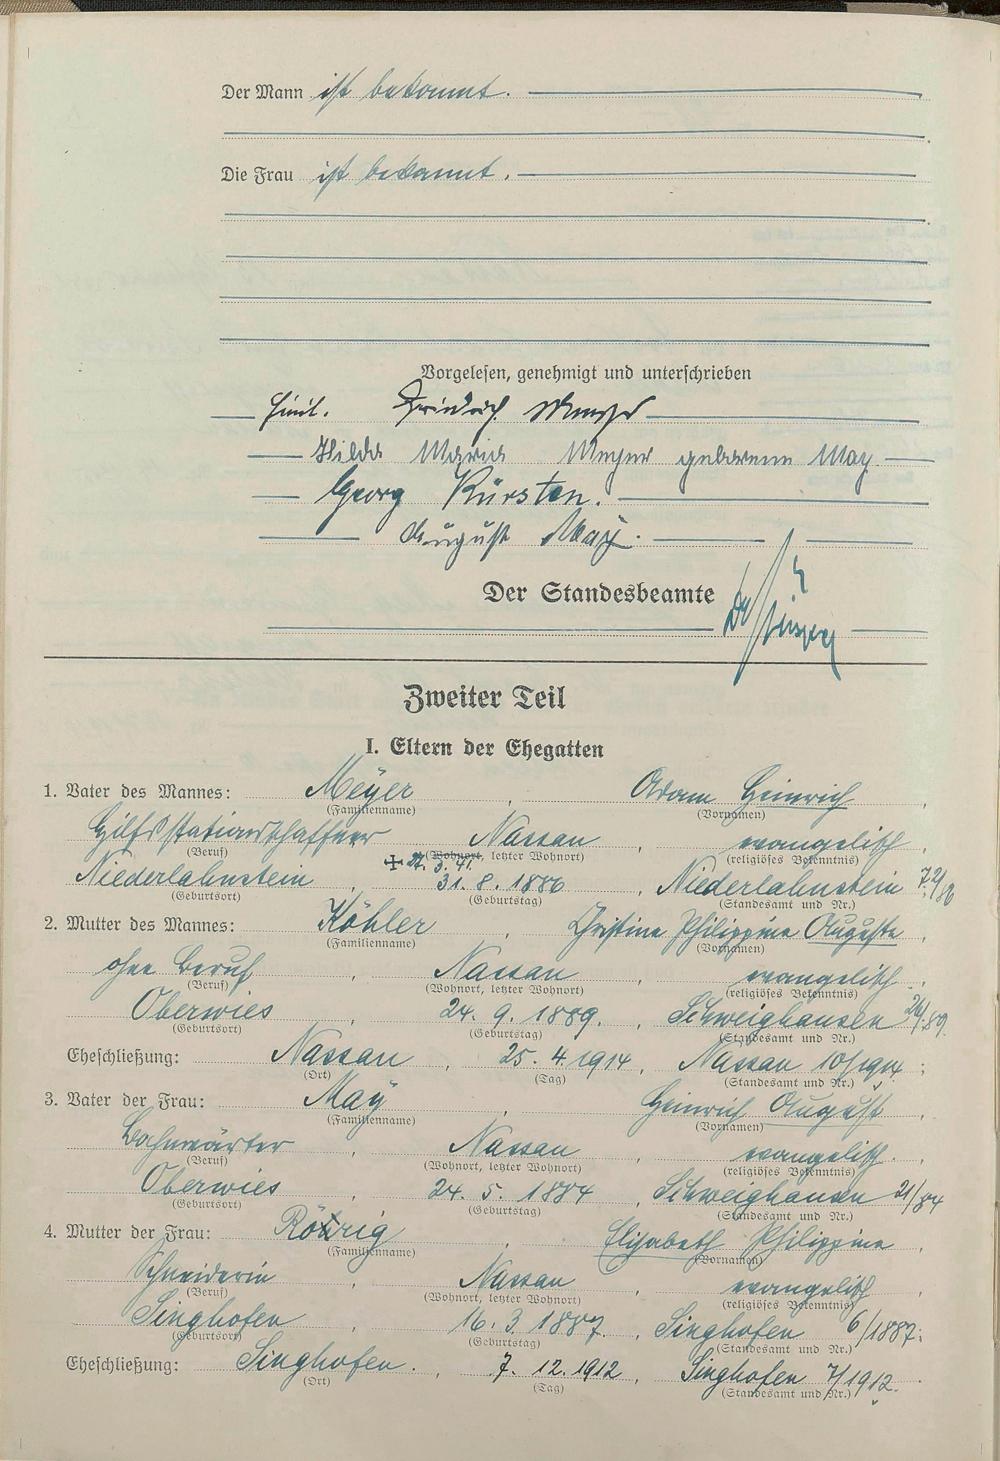 Der Mann ist bekannt.
Die Frau ist bekannt.
Vorgelesen, genehmigt und unterschrieben
Friedrich Meyer
Hilda Maria Meyer geborene May
Georg Kürsten.
August May.
Der Standesbeamte
Zweiter Teil
I. Eltern der Ehegatten
1. Vater des Mannes: Meyer, Adam Heinrich,
(Familienname) (Vornamen)
Hilfsstationsschaffner Nassau, evangelisch,
(Beruf) (Wohnort, letzter Wohnort) (religiöses Bekenntnis)
Niederlahnstein, 31. 8. 1886, Niederlahnstein
(Geburtsort) (Geburtstag) (Standesamt und Nr.)
2. Mutter des Mannes: Köhler, Christine Philippine Auguste,
(Familienname) (Vornamen)
ohne Beruf, Nassau, evangelisch,
(Beruf) (Wohnort, letzter Wohnort) (religiöses Bekenntnis)
Oberwies, 24. 9. 1889., Schweighausen
(Geburtsort) (Geburtstag) (Standesamt und Nr.)
Eheschließung: Nassau, 25. 4. 1914, Nassau 10/1914;
(Ort) (Tag) (Standesamt und Nr.)
3. Vater der Frau: May, Heinrich August,
(Familienname) (Vornamen)
Bahnwärter, Nassau, evangelisch,
(Beruf) (Wohnort, letzter Wohnort) (religiöses Bekenntnis)
Oberwies, 24. 5. 1884, Schweighausen 21/84
(Geburtsort) (Geburtstag) (Standesamt und Nr.)
4. Mutter der Frau: Elisabeth Philippine,
(Familienname) (Vornamen)
Schneiderin, Nassau, evangelisch,
(Beruf) (Wohnort, letzter Wohnort) (religiöses Bekenntnis)
Singhofen, 16. 3. 1887., Singhofen 6/1887;
(Geburtsort) (Geburtstag) (Standesamt und Nr.)
Eheschließung: Singhofen., 7. 12. 1912, Singhofen 7/1912.
(Ort) (Tag) (Standesamt und Nr.)